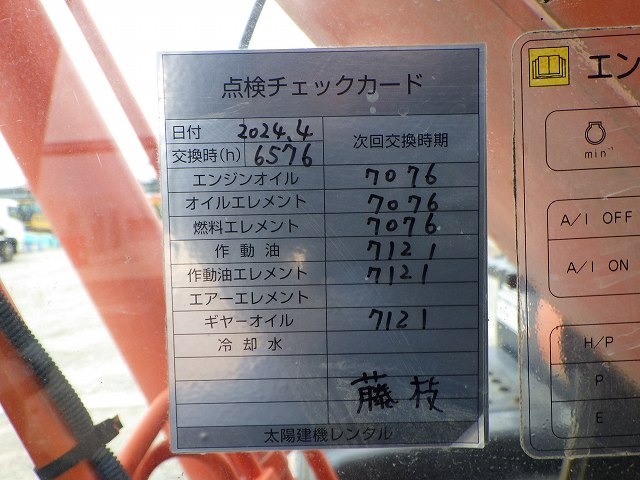 点検チェックカード
日付 2024.4 次回交換時期
交換時(h) 6576
エンジンオイル 7076
オイルエレメント 7076
燃料エレメント 7076
作動油 7121
作動油エレメント 7121
エアーエレメント
ギヤーオイル 7121
冷却水
藤枝
太陽建機レンタル
エン
min⁻¹
A/I OFF
A/I ON
H/P
P
E